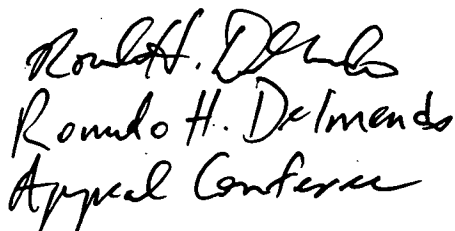 Romulo H. Delmendo
Romulo H. Delmendo
Appeal Conferee